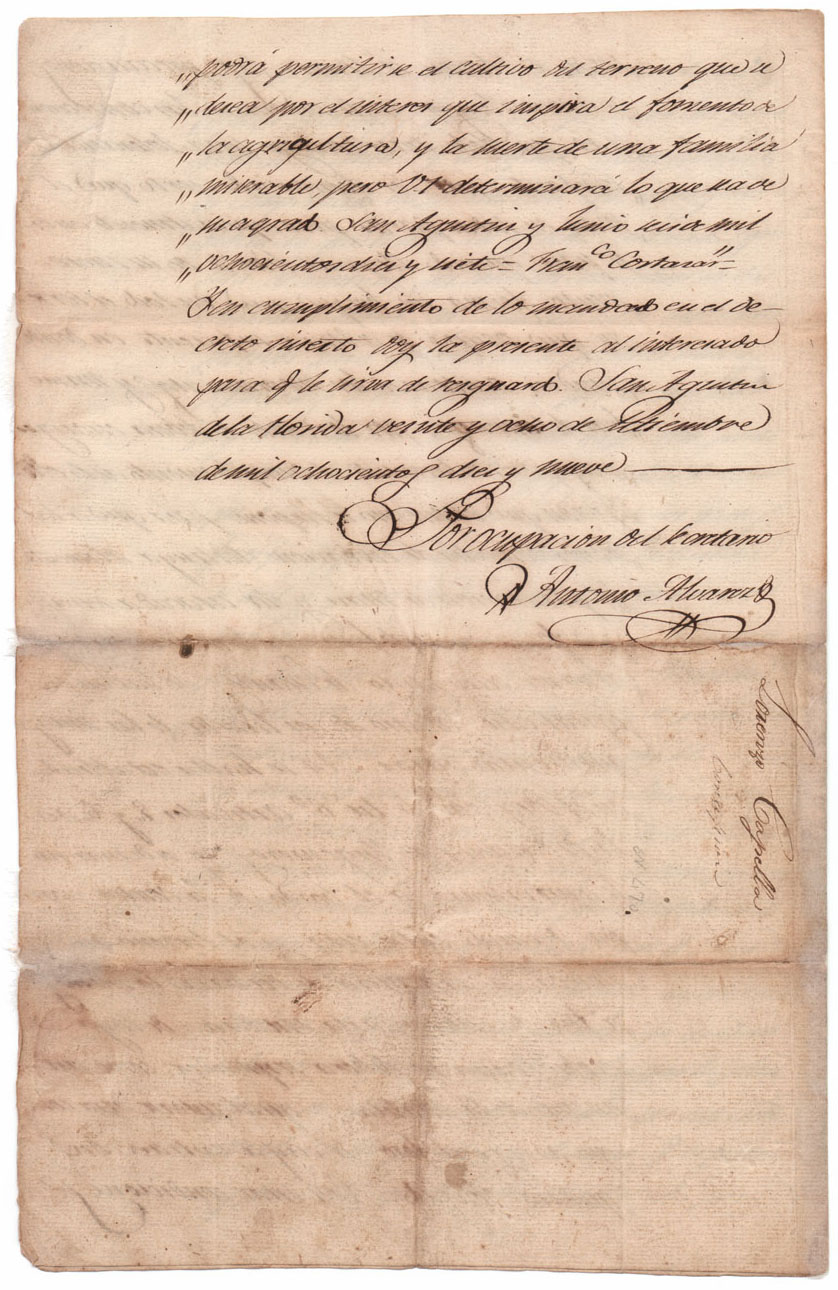 „podrá permitirse el cultivo del terreno que se
„desea por el interes que inspira el fomento de
„la agricultura, y la suerte de una familia
„miserable, pero V.S. determinará lo que sea de
„su agrado. San Agustin y Junio seis de mil
„ochocientos diez y siete = Fran.co Cortaras" =
Y en cumplimiento de lo mandado en el de-
creto inserto doy la presente al interesado
para q.e le sirva de resguardo. San Agustin
de la Florida veinte y ocho de Diciembre
de mil ochocientos diez y nueve
Por ocupacion del Secretario
Antonio Alvarez
Lorenzo Capella
Concession